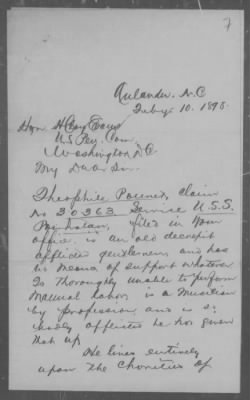 7
Aulander, N.C
Feby. 10. 1898.
Hon. H Clay Evans
U.S Pen. Com.
Washington D.C
My Dear Sir.
Theophile claim
No 30363 Service U.S.S.
filed in your
office. is an old decrepit
afflicted gentleman and has
no means of support whatever
Is Thoroughly unable to perform
Manual labor, is a Musician
by profession and is
afflicted he has given
that up
He lives entirely
upon The Charities of